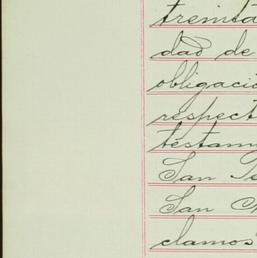 treinta
dad de
obligació
respect
testam
San
San
clamos